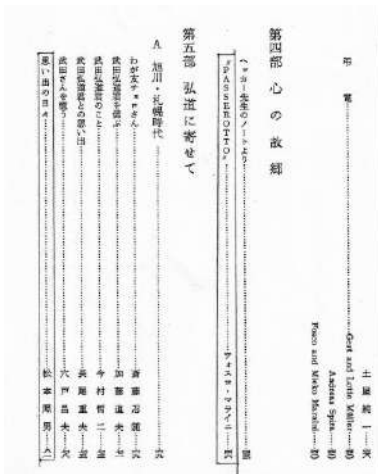 土屋純一
弔電……Gert and Lottie Müller
Andreas Spira
Fosco and Mieko Maraini
第四部 心の故郷
ヘッカー先生のノートより
"PASSEROTTO"……フォスコ・マライニ
第五部 弘道に寄せて
A 旭川・札幌時代
わが友チョロさん……斎藤
武田弘道君を偲ぶ……加藤道夫
武田弘道君のこと……今村哲二
武田弘道君との思い出……長尾重夫
武田さんを憶う……宍戸昌夫
思い出の日々……松本照男